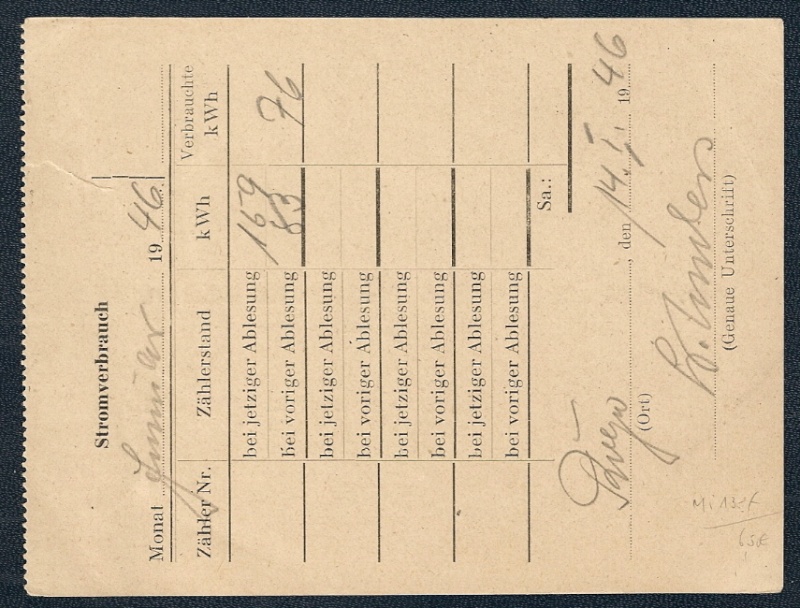 Stromverbrauch
Monat Januar 1946
Zähler Nr. Zählerstand kWh Verbrauchte kWh
bei jetziger Ablesung 159
bei voriger Ablesung 83 76
bei jetziger Ablesung
bei voriger Ablesung
bei jetziger Ablesung
bei voriger Ablesung
bei jetziger Ablesung
bei voriger Ablesung
Sa.:
, den 14. I. 1946
(Ort)
(Genaue Unterschrift)